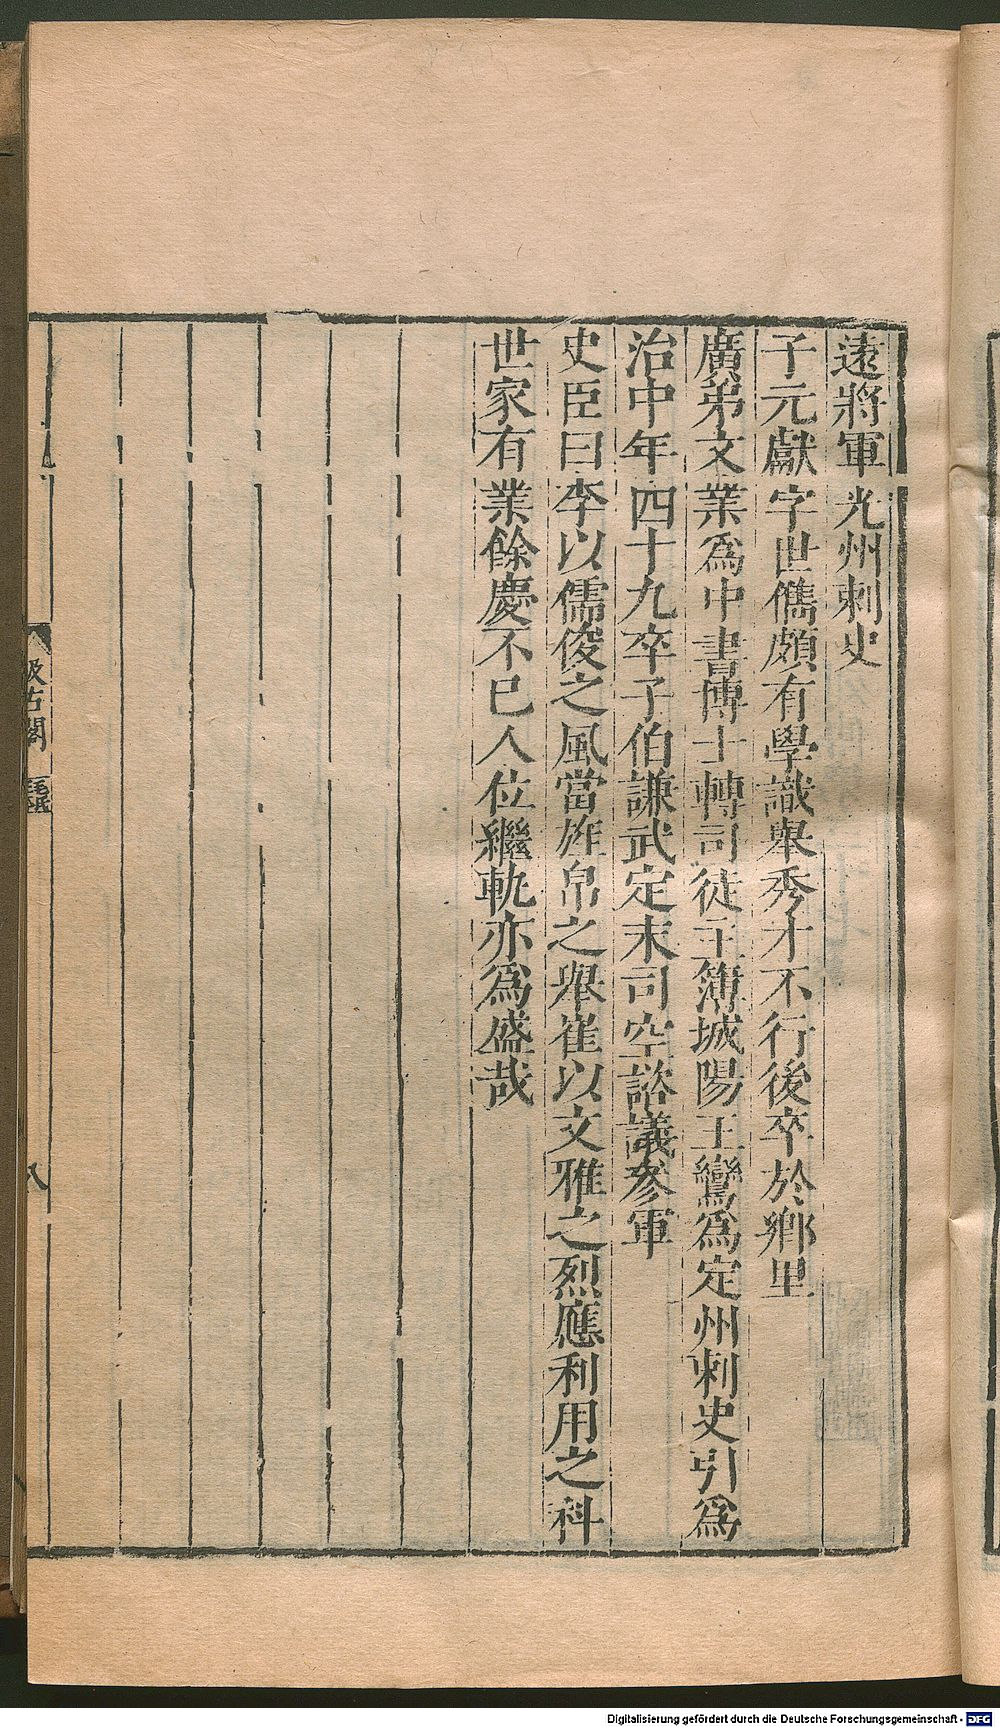 遠將軍光州刺史
子元獻字世儁頗有學識舉秀才不行後卒於鄉里
廣弟文業爲中書博士轉司徒主簿城陽王鸞爲定州刺史引爲
治中年四十九卒子伯謙武定末司空諮議參軍
史臣曰李以儒俊之風當旌帛之舉崔以文雅之烈應利用之科
世家有業餘慶不已人位繼軌亦爲盛哉
汲古閣
八
Digitalisierung gefördert durch die Deutsche Forschungsgemeinschaft - DFG